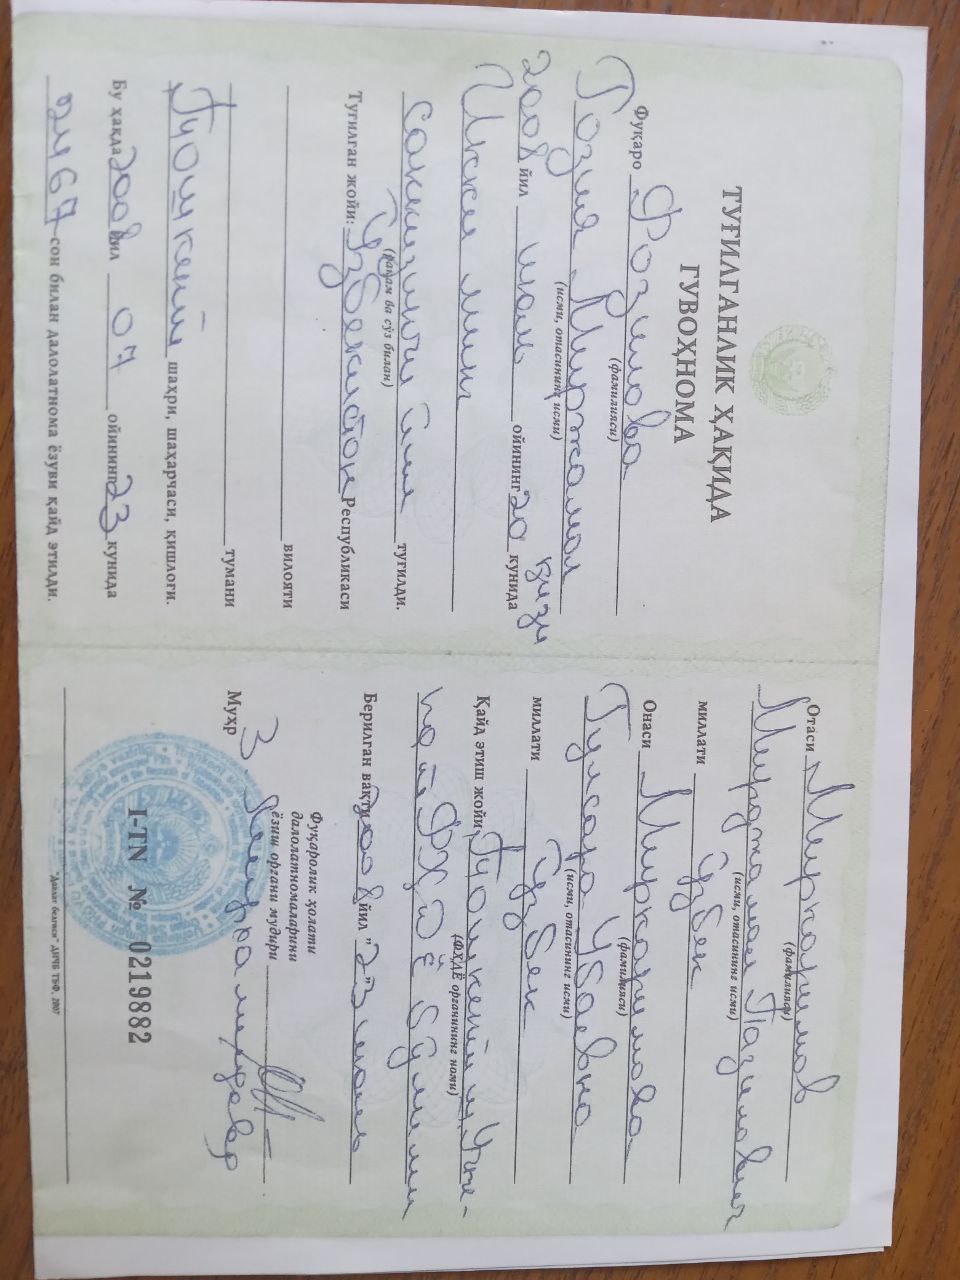 ТУҒИЛГАНЛИК ҲАҚИДА
ГУВОҲНОМА
Фуқаро Фозилова
(фамилияси)
Гозия Миржамол қизи
(исми, отасининг исми)
2008 йил июль ойининг 20 кунида
Икки минг
саккизинчи йил туғилди.
(рақам ва сўз билан)
Туғилган жойи: Ўзбекистон Республикаси
вилояти
тумани
Тошкент шаҳри, шаҳарчаси, қишлоғи.
Бу ҳақда 2008 йил 07 ойининг 23 кунида
2467 сон билан далолатнома ёзуви қайд этилди.
Отаси Миркаримов
(фамилияси)
Мирджамал Пазилович
(исми, отасининг исми)
миллати ўзбек
Онаси Миркаримова
(фамилияси)
Гулсара Убаевна
(исми, отасининг исми)
миллати ўзбек
Қайд этиш жойи Тошкент ш,
(ФҲДЁ органининг номи)
ФХДЁ бўлими
Берилган вақти 2008 йил "23" июль
Фуқаролик ҳолати
далолатномаларини
ёзиш органи мудири
Муҳр
I-TN № 0219882
"Давлат белгиси" ДИЧБ ТБФ, 2007